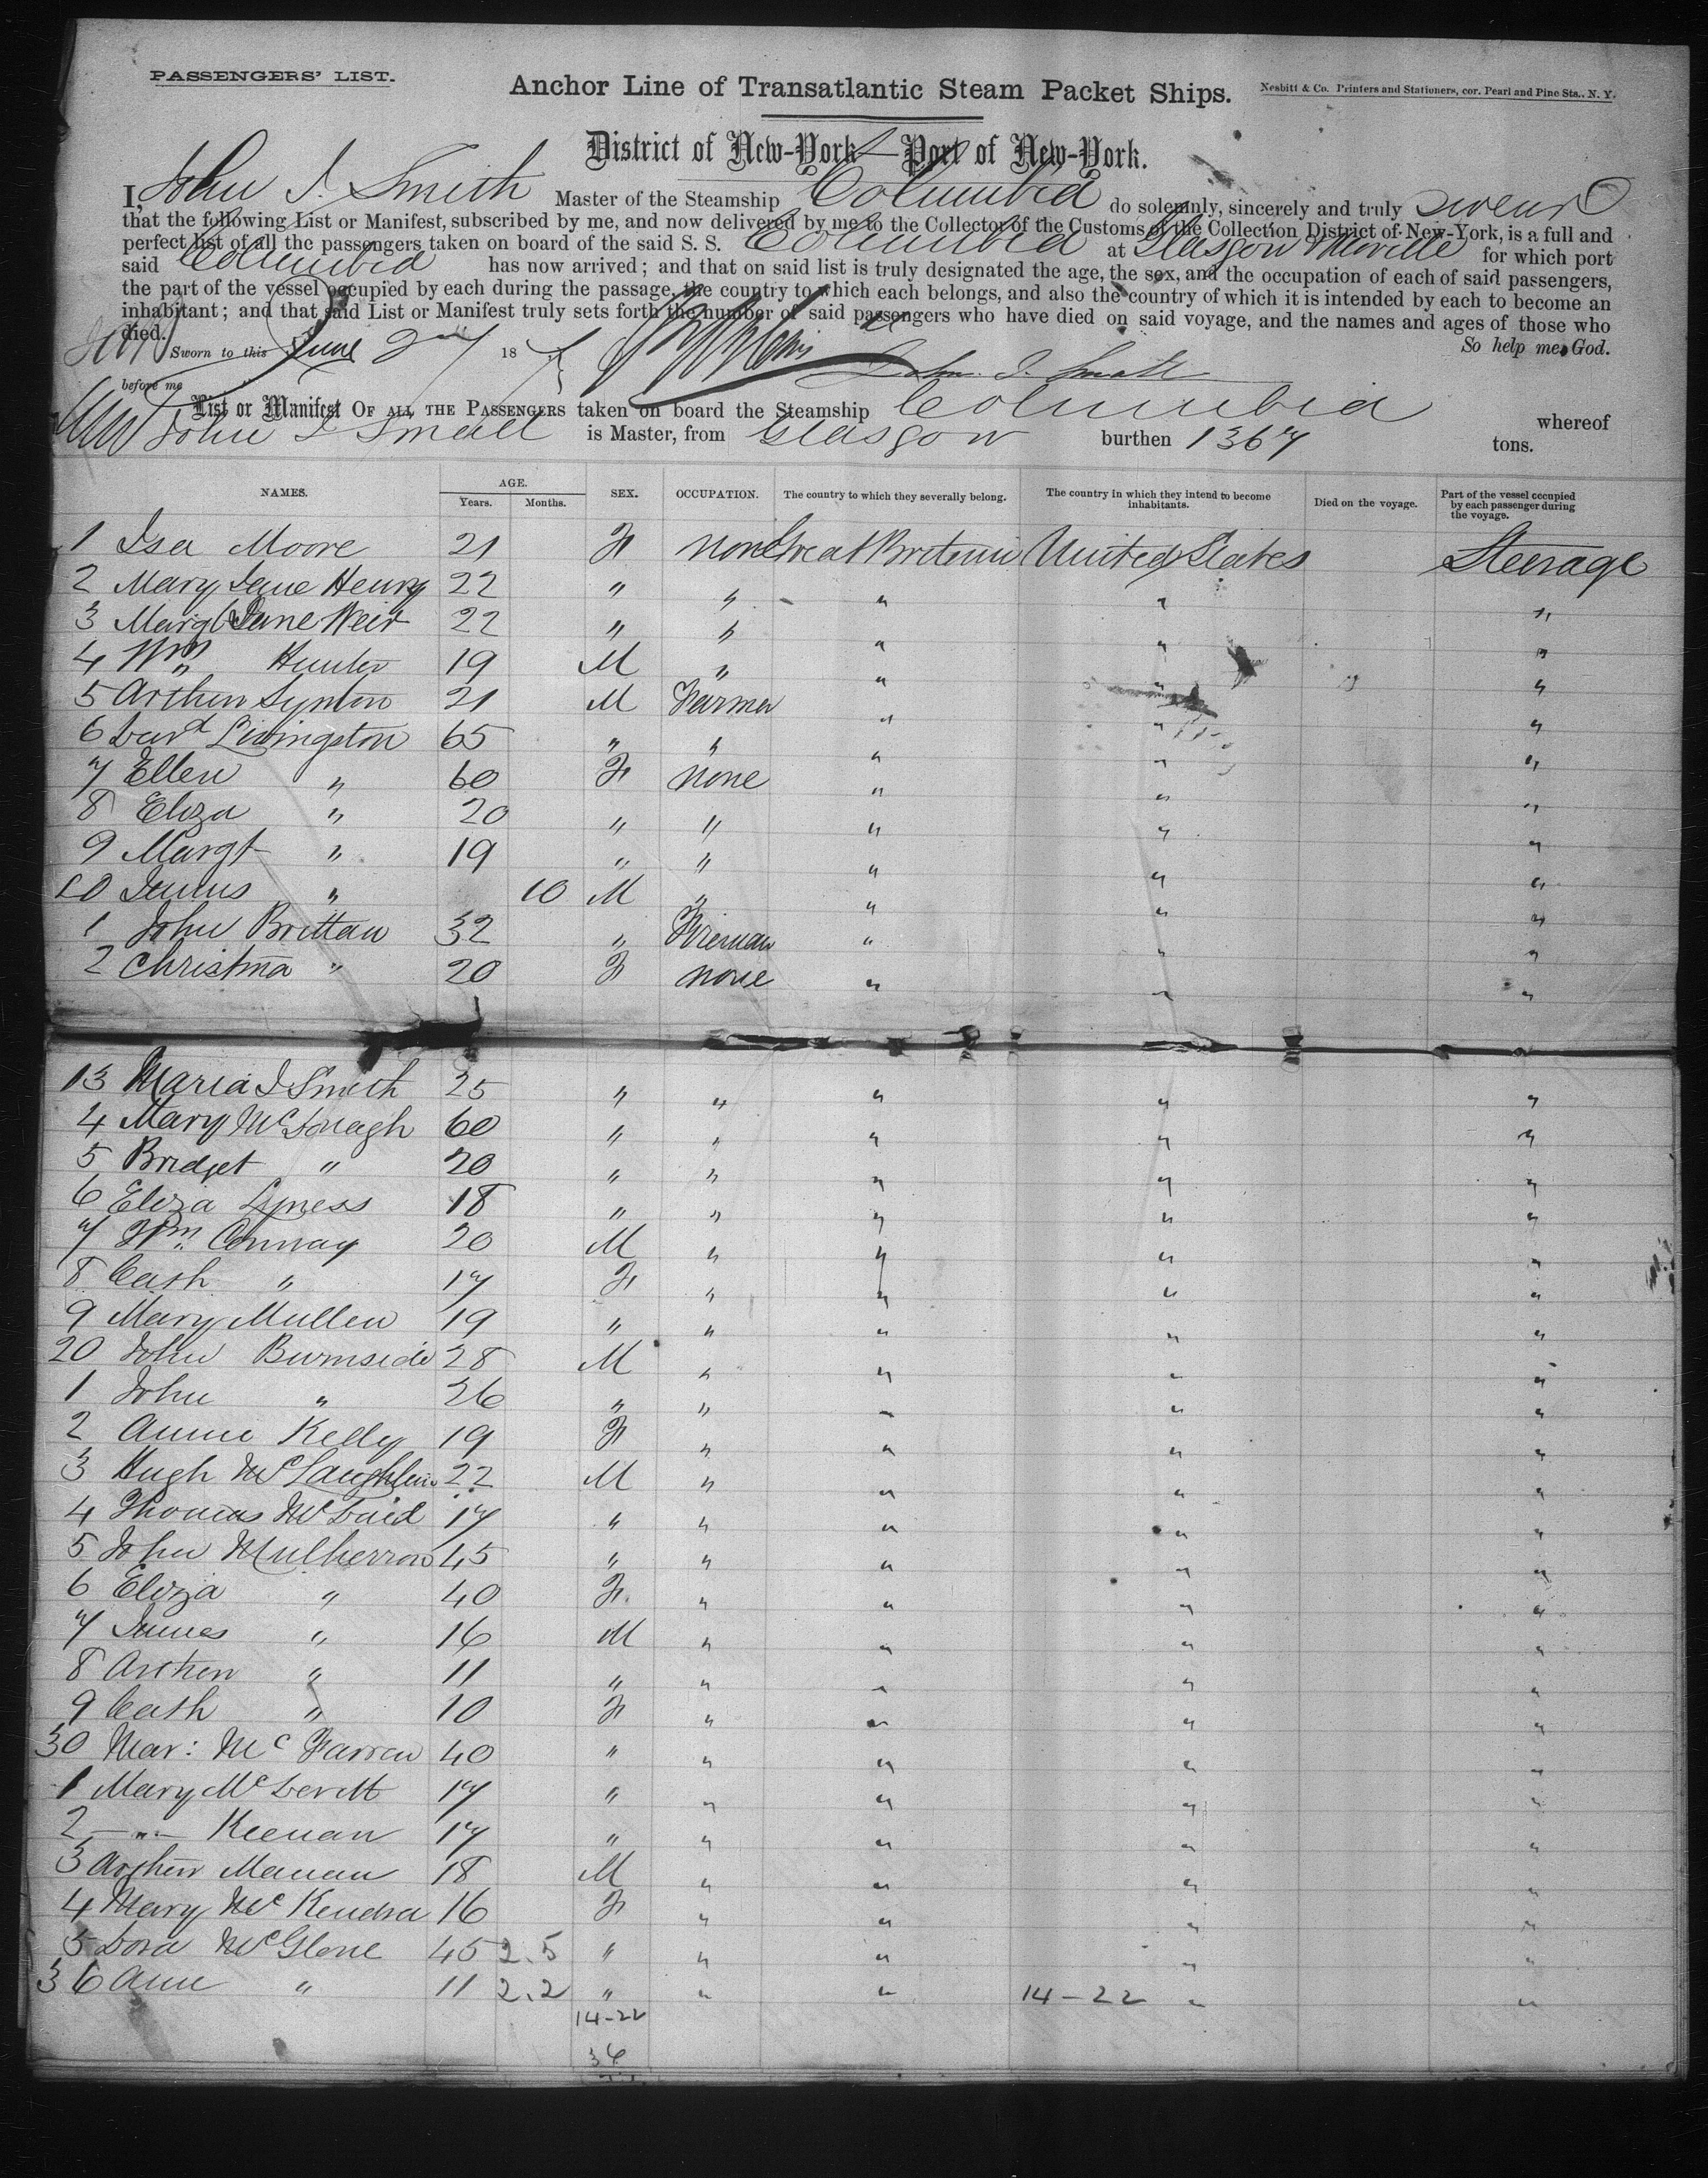 PASSENGERS' LIST.
Anchor Line of Transatlantic Steam Packet Ships.
Nesbitt & Co. Printers and Stationers, cor. Pearl and Pine Sts., N. Y.
District of New-York—Port of New-York.
I, John I. Smith Master of the Steamship Columbia do solemnly, sincerely and truly swear
that the following List or Manifest, subscribed by me, and now delivered by me to the Collector of the Customs of the Collection District of New-York, is a full and
perfect list of all the passengers taken on board of the said S. S. Columbia at Glasgow & Moville for which port
said Columbia has now arrived; and that on said list is truly designated the age, the sex, and the occupation of each of said passengers,
the part of the vessel occupied by each during the passage, the country to which each belongs, and also the country of which it is intended by each to become an
inhabitant; and that said List or Manifest truly sets forth the number of said passengers who have died on said voyage, and the names and ages of those who
died. So help me God.
Sworn to this June 2 187
before me John I. Small
List or Manifest OF ALL THE PASSENGERS taken on board the Steamship Columbia whereof
John I Small is Master, from Glasgow burthen 1367 tons.
NAMES. AGE. Years. Months. SEX. OCCUPATION. The country to which they severally belong. The country in which they intend to become inhabitants. Died on the voyage. Part of the vessel occupied by each passenger during the voyage.
1 Isa Moore 21 F none Great Britain United States Steerage
2 Mary Jane Henry 22 " " " " "
3 Margt Jane Weir 22 " " " " "
4 Wm Hunter 19 M " " " "
5 Arthur Synton 21 M Farmer " " "
6 Davd Livingston 65 " " " " "
7 Ellen " 60 F none " " "
8 Eliza " 20 " " " " "
9 Margt " 19 " " " " "
10 James " 10 M " " " "
1 John Brittan 32 " Fireman " " "
2 Christina " 20 F none " " "
13 Maria J Smith 25 " " " " "
4 Mary McDonagh 60 " " " " "
5 Bridget " 20 " " " " "
6 Eliza Lyness 18 " " " " "
7 Wm Conway 20 M " " " "
8 Cath " 17 F " " " "
9 Mary Mullen 19 " " " " "
20 John Burnside 28 M " " " "
1 John " 26 " " " " "
2 Annie Kelly 19 F " " " "
3 Hugh McLaughlin 22 M " " " "
4 Thomas McDaid 17 " " " " "
5 John Mulherron 45 " " " " "
6 Eliza " 40 F " " " "
7 James " 16 M " " " "
8 Arthur " 11 " " " " "
9 Cath " 10 F " " " "
30 Mar: McFarren 40 " " " " "
1 Mary McDevitt 17 " " " " "
2 —"— Keenan 17 " " " " "
3 Arthur Manan 18 M " " " "
4 Mary McKendra 16 F " " " "
5 Dora McGlone 45 2.5 " " " " "
36 Ann " 11 2.2 " " " 14-22 " "
14-22
36